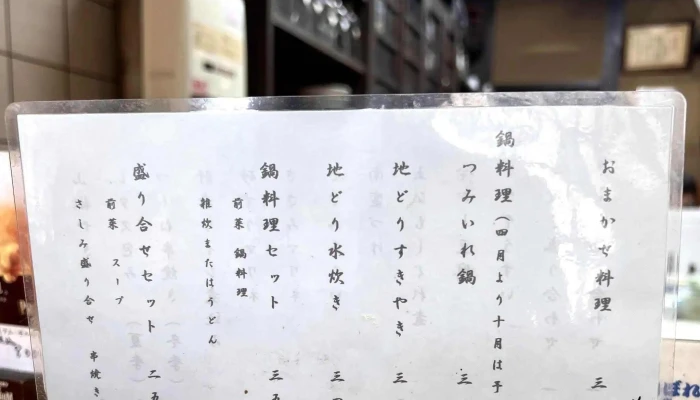 おまかせ料理 三
鍋料理（四月より十月は予
つみいれ鍋 三
地どりすきやき 三
地どり水炊き 三
鍋料理セット 三五
前菜 鍋料理
雑炊またはうどん
盛り合せセット 二五
前菜 スープ
さしみ盛り合せ 串焼き